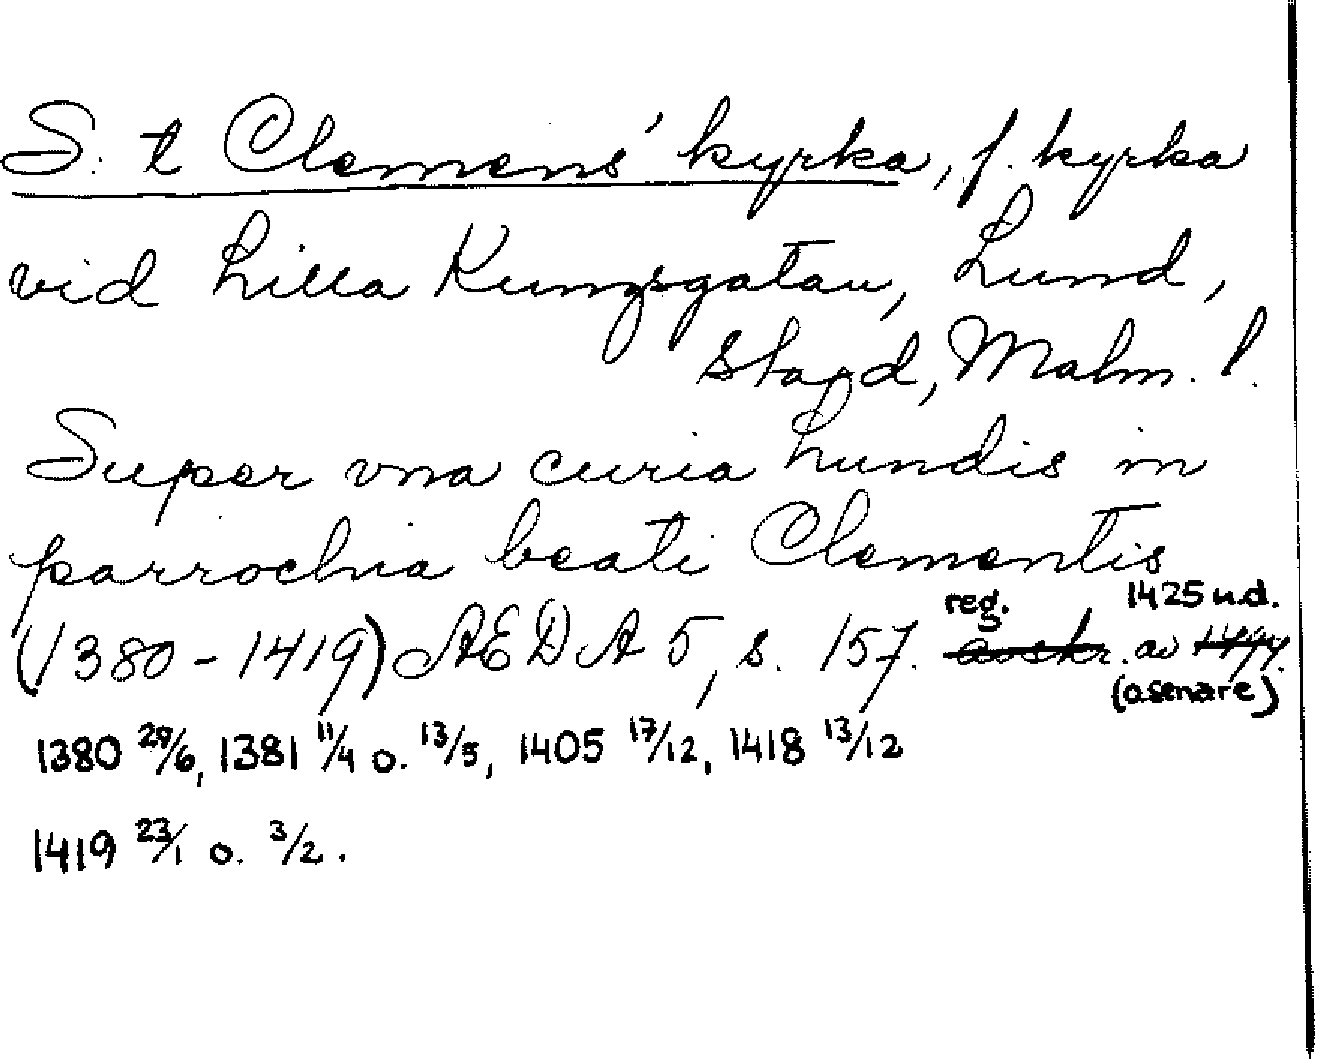 S. t Clemens' kyrka, f. kyrka
vid Lilla Kungsgatan, Lund,
stad, Malm. l.
Super vna curia Lundis in
parrochia beati Clementis
reg. 1425 u.d.
(1380-1419) AEDA 5, s. 157. avskr. av 1494.
(o senare)
1380 29/6, 1381 11/4 o. 13/5, 1405 17/12, 1418 13/12
1419 23/1 o. 3/2.